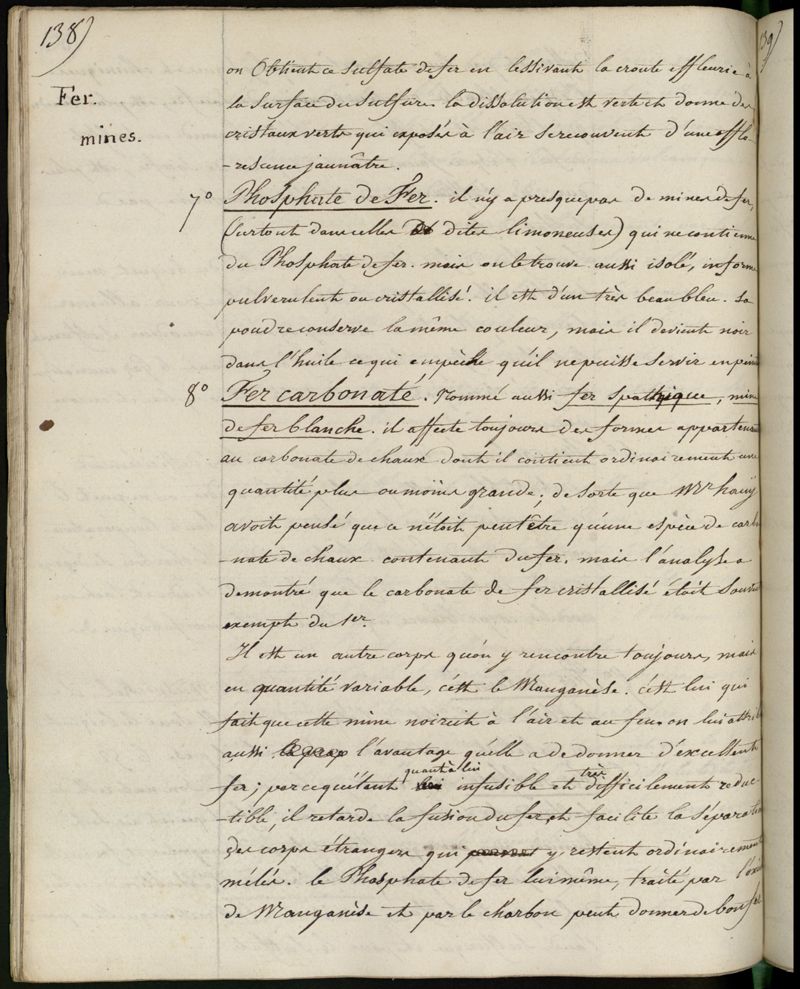 138)
139)
Fer.
mines.
on Obtient ce sulfate de fer en lessivant la croute effleurie à
la surface du sulfure. la dissolution est verte et donne des
cristaux verts qui exposés à l'air se recouvent d'une efflo-
-rescence jaunâtre.
7° Phosphate de Fer. il n'y a presque pas de mines de fer,
(surtout dans celles dites limoneuses) qui ne contienne
du Phosphate de fer. mais on le trouve aussi isolé, informe
pulverulent ou cristallisé. il est d'un très beau bleu. sa
poudre conserve la même couleur, mais il devient noir
dans l'huile ce qui empêche qu'il ne puisse servir en pein
8° Fer carbonaté. Nommé aussi fer spathique, mine
de fer blanche. il affecte toujours des formes appartenant
au carbonate de chaux dont il contient ordinairement une
quantité plus ou moins grande; de sorte que Mr hauÿ
avoit pensé que ce n'étoit peut être qu'une espèce de carbo
-nate de chaux contenant du fer. mais l'analyse a
demontré que le carbonate de fer cristallisé étoit souvent
exempt du 1er.
Il est un autre corps qu'on y rencontre toujours, mais
en quantité variable, c'est le Manganèse. c'est lui qui
fait que cette mine noircit à l'air et au feu. on lui attribue
aussi l'avantage qu'elle a de donner d'excellent
fer; parcequ'étant quant à lui infusible et très difficilement reduc-
-tible, il retarde la fusion du fer et facilite la séparation
des corps étrangers qui y restent ordinairement
mélés. le Phosphate de fer lui même, traité par l'oxide
de Manganèse et par le charbon peut donner de bon fer